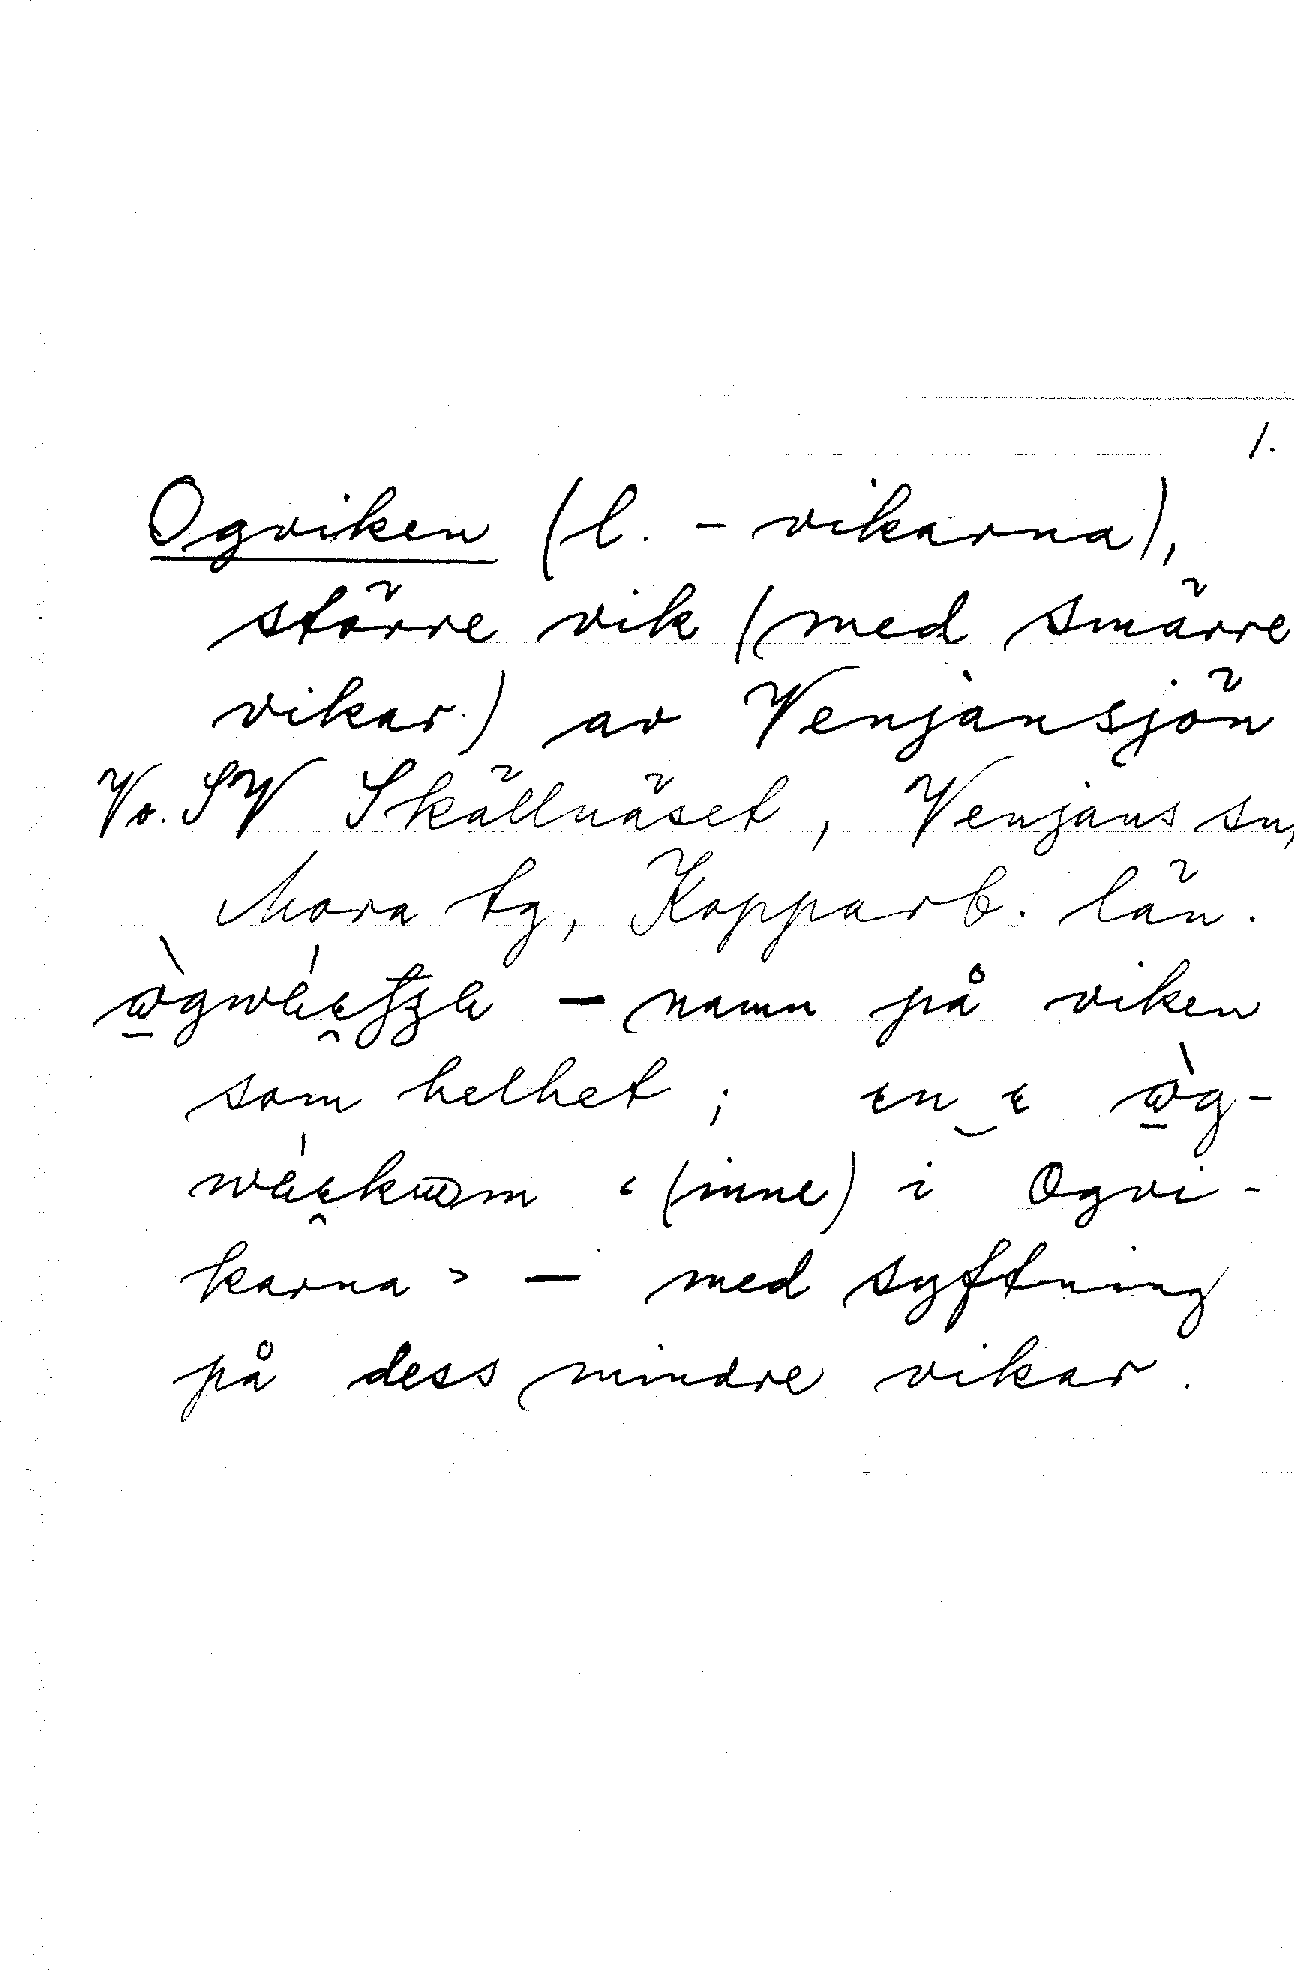 1.
Ogviken (l. - vikarna),
större vik (med smärre
vikar) av Venjansjön
V o. SV Skällnäset, Venjans sn,
Mora tg, Kopparb. län.
— namn på viken
som helhet;
‘(inne) i Ogvi-
karna’ — med syftning
på dess mindre vikar.